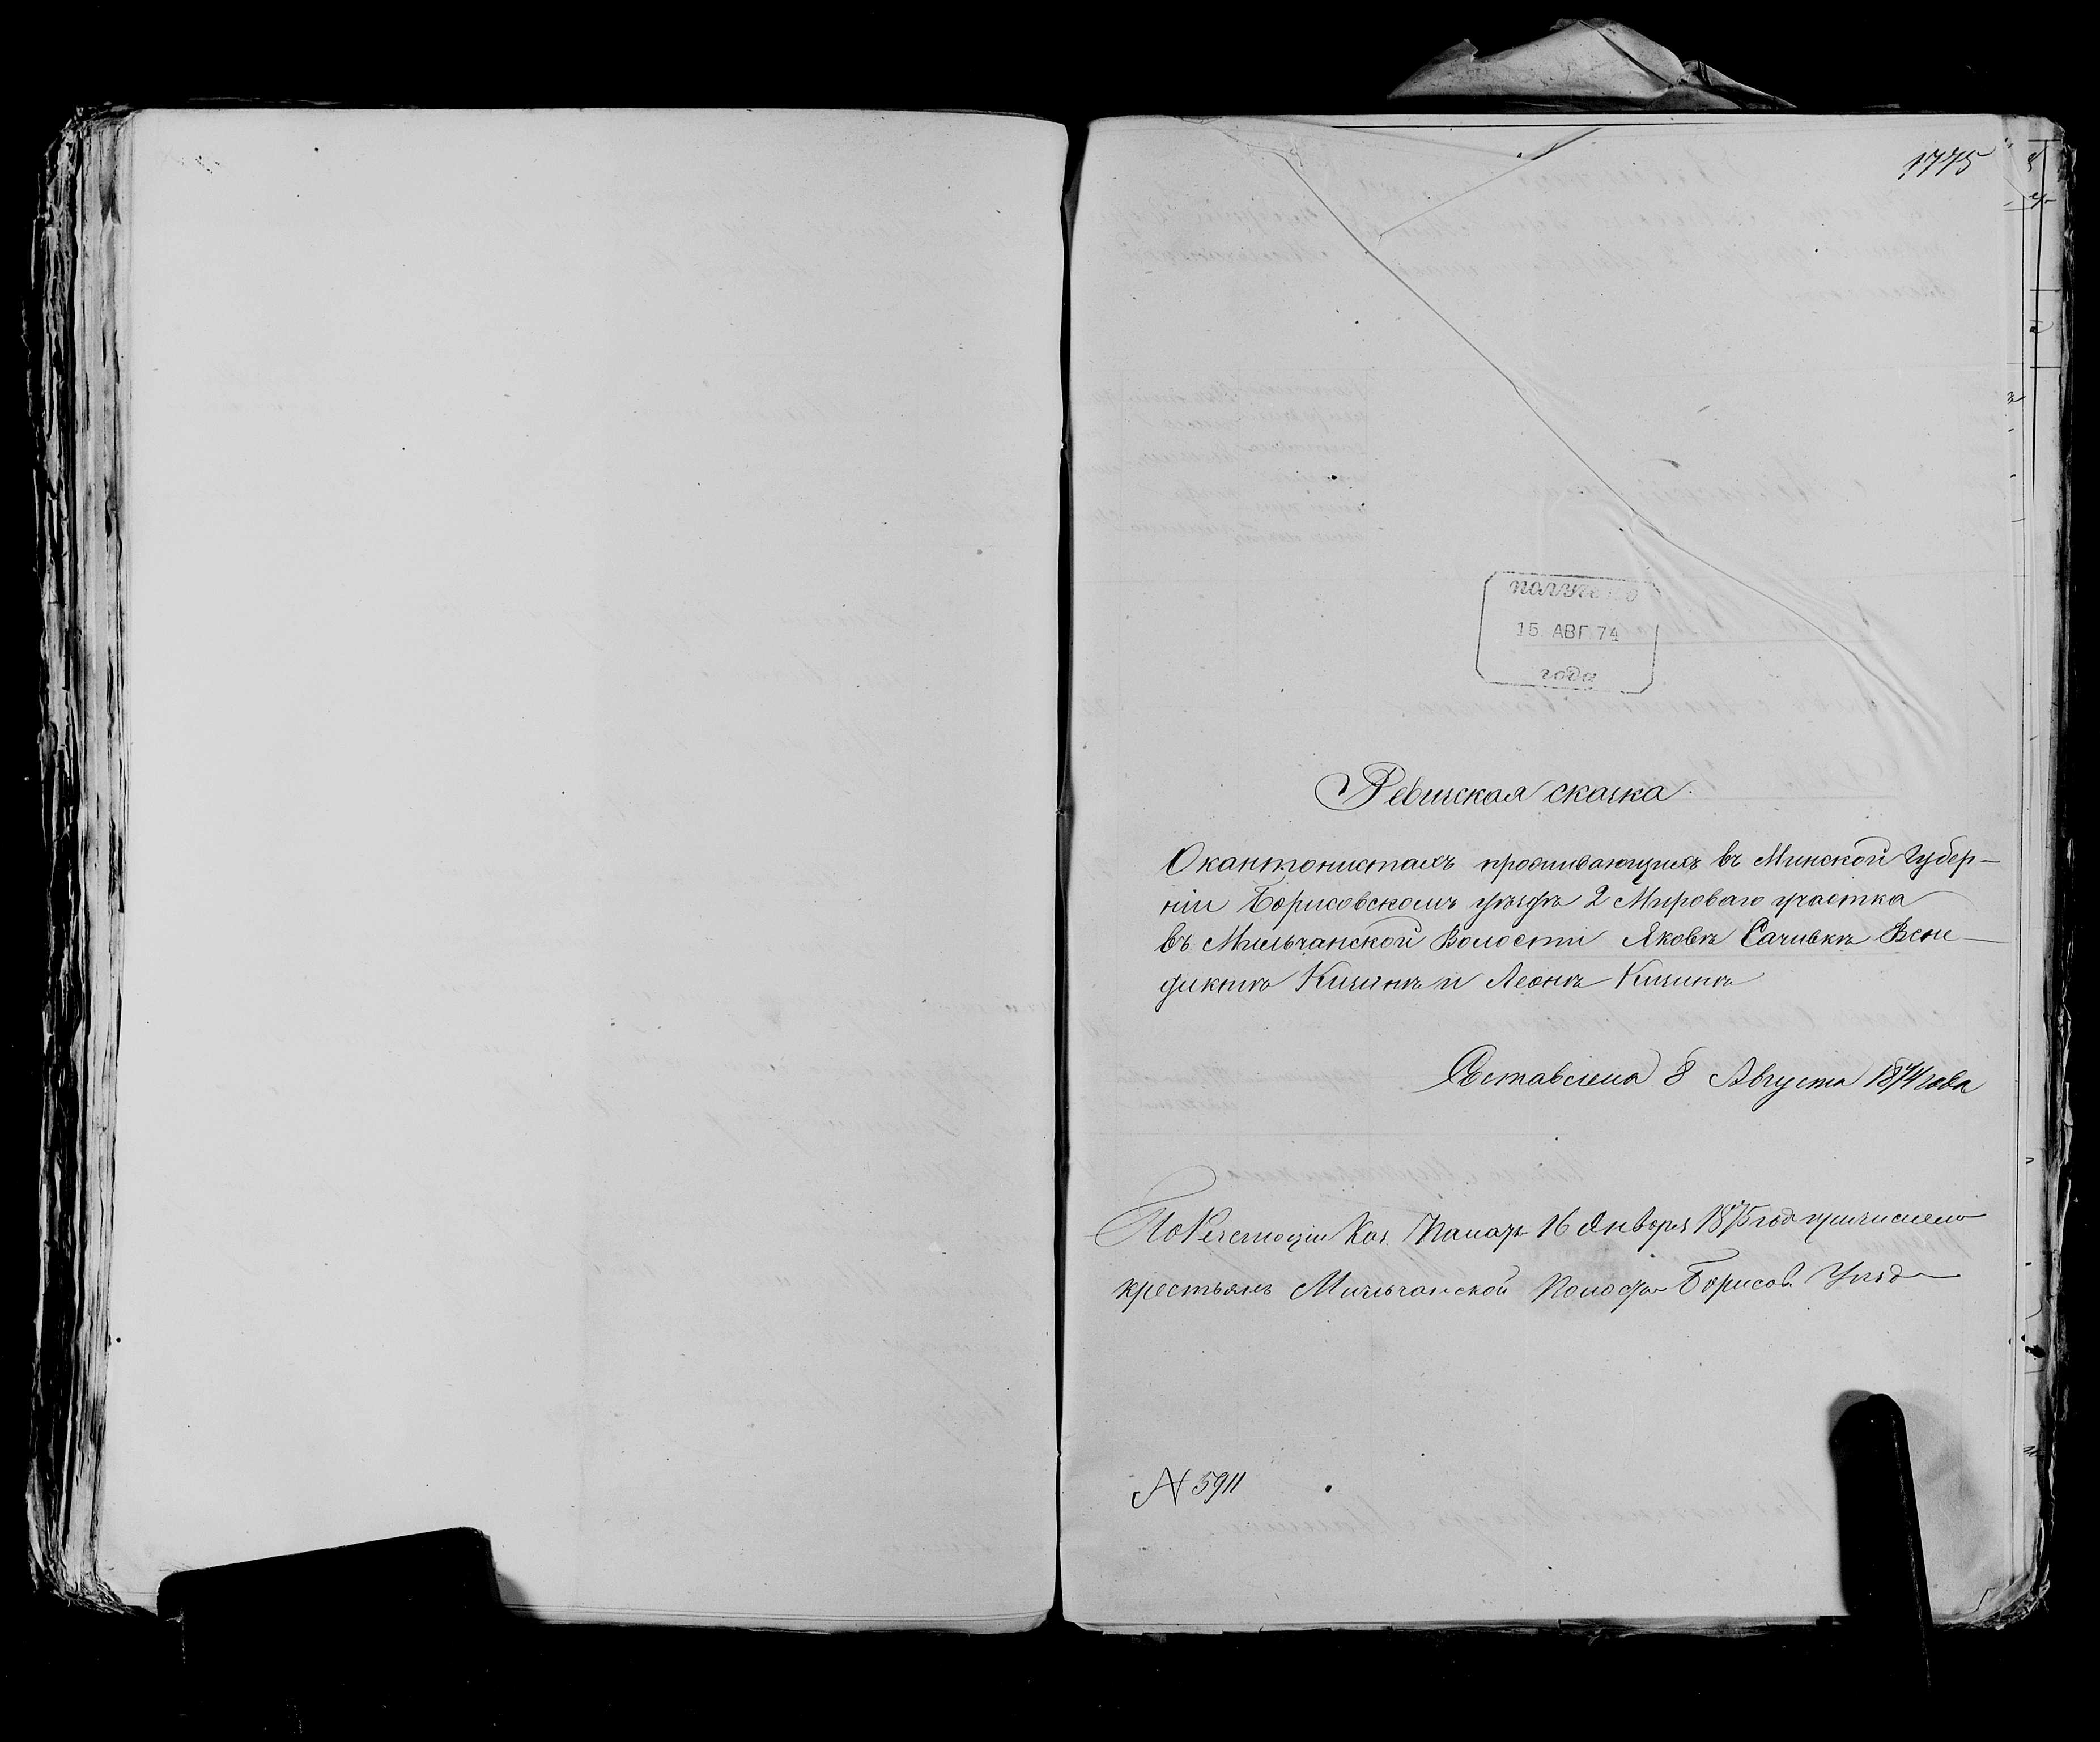 1775
ПОЛУЧЕНО
15 АВГ. 74
года
Ревизская сказка.
О кантонистахъ проживающихъ въ Минской Губер-
ніи Борисовскомъ уѣздѣ 2 Мироваго участка
въ Мильчанской Волости Яковѣ Сачивкѣ Вене-
диктѣ Кизинѣ и Леонѣ Кизинѣ
Составлена 8 Августа 1874 года
По Каз. Палаты 16 Января 1875 год причислено
крестьянъ Мильчанской Волости Борисов. Уѣзд
N 5911